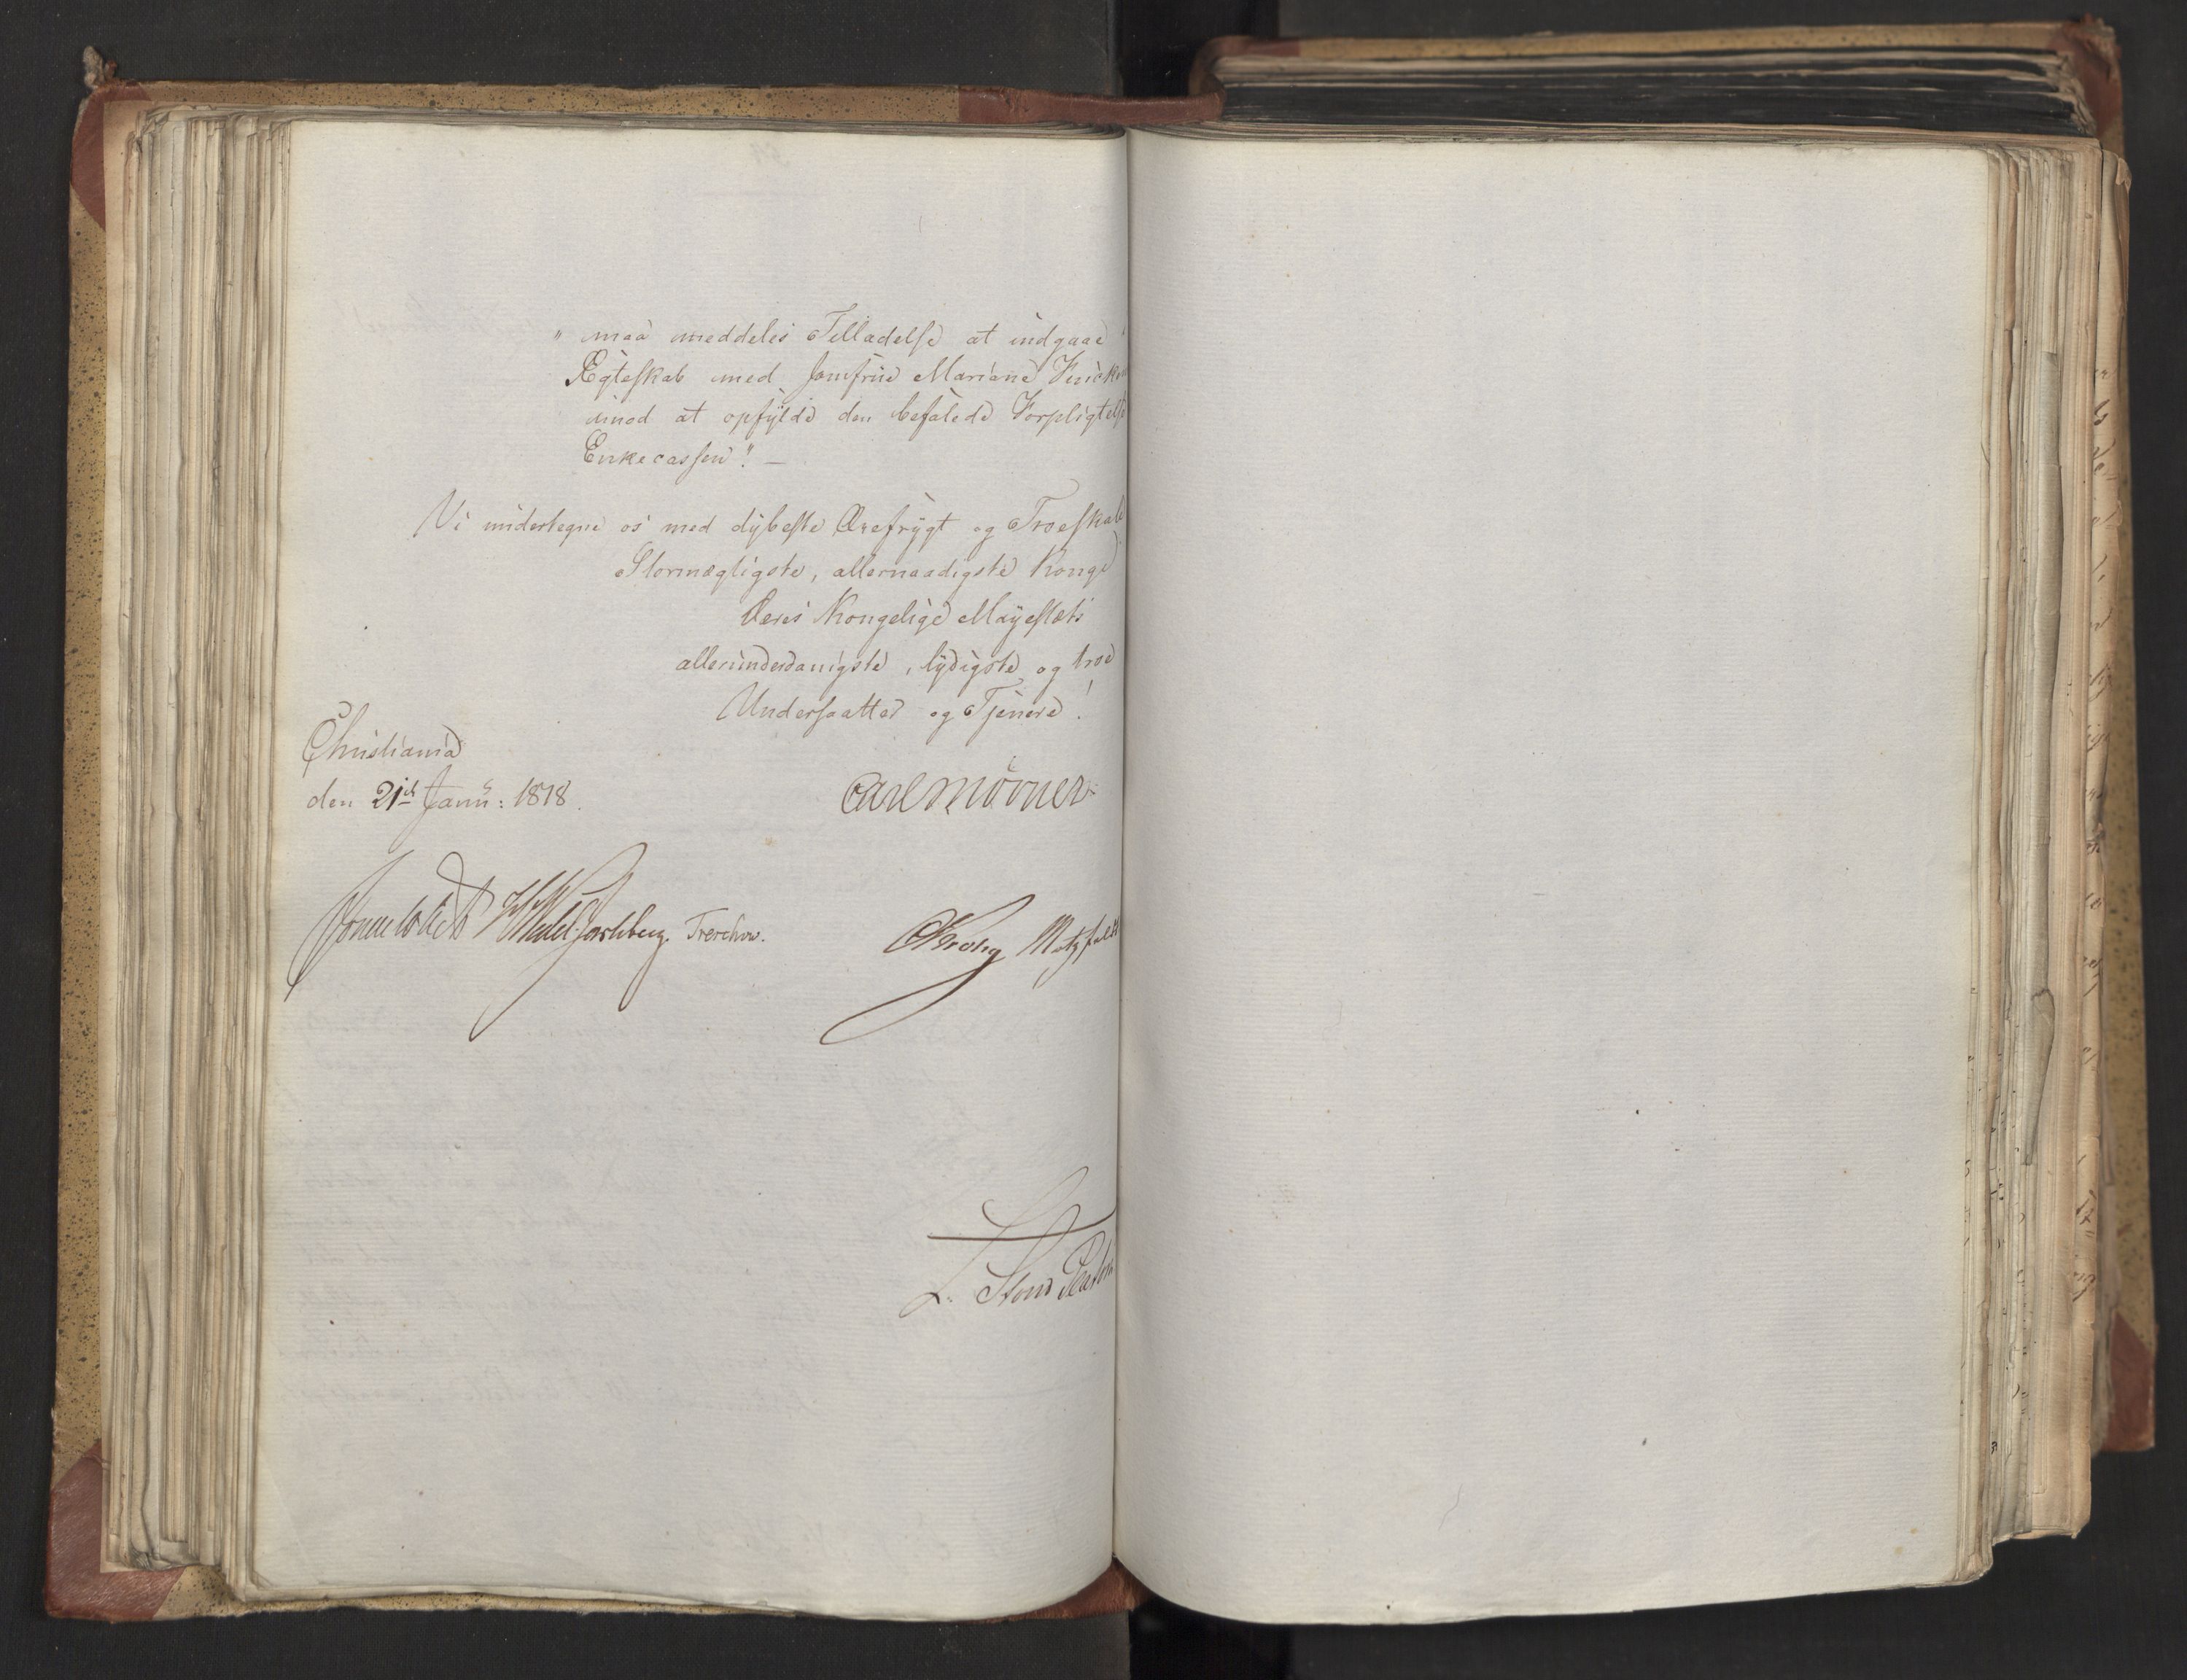 "maa meddeles Tilladelse at indgaae
Ægteskab med Jomfrue Mariane
imod at opfylde den befalede Forpligtelse
Enkecassen". —
Vi undertegne os med dybeste Ærefrygt og Troeskab
Stormægtigste, allernaadigste Konge
Deres Kongelige Mayestæts
allerunderdanigste, lydigste og troe
Undersaatter og Tjenere!
Christiania
den 21de Janu: 1818.
Carl Mörner
Sommerhielm HWedel Jarlsberg. Treschow. CKrohg Motzfeldt
L. Stoud Platou